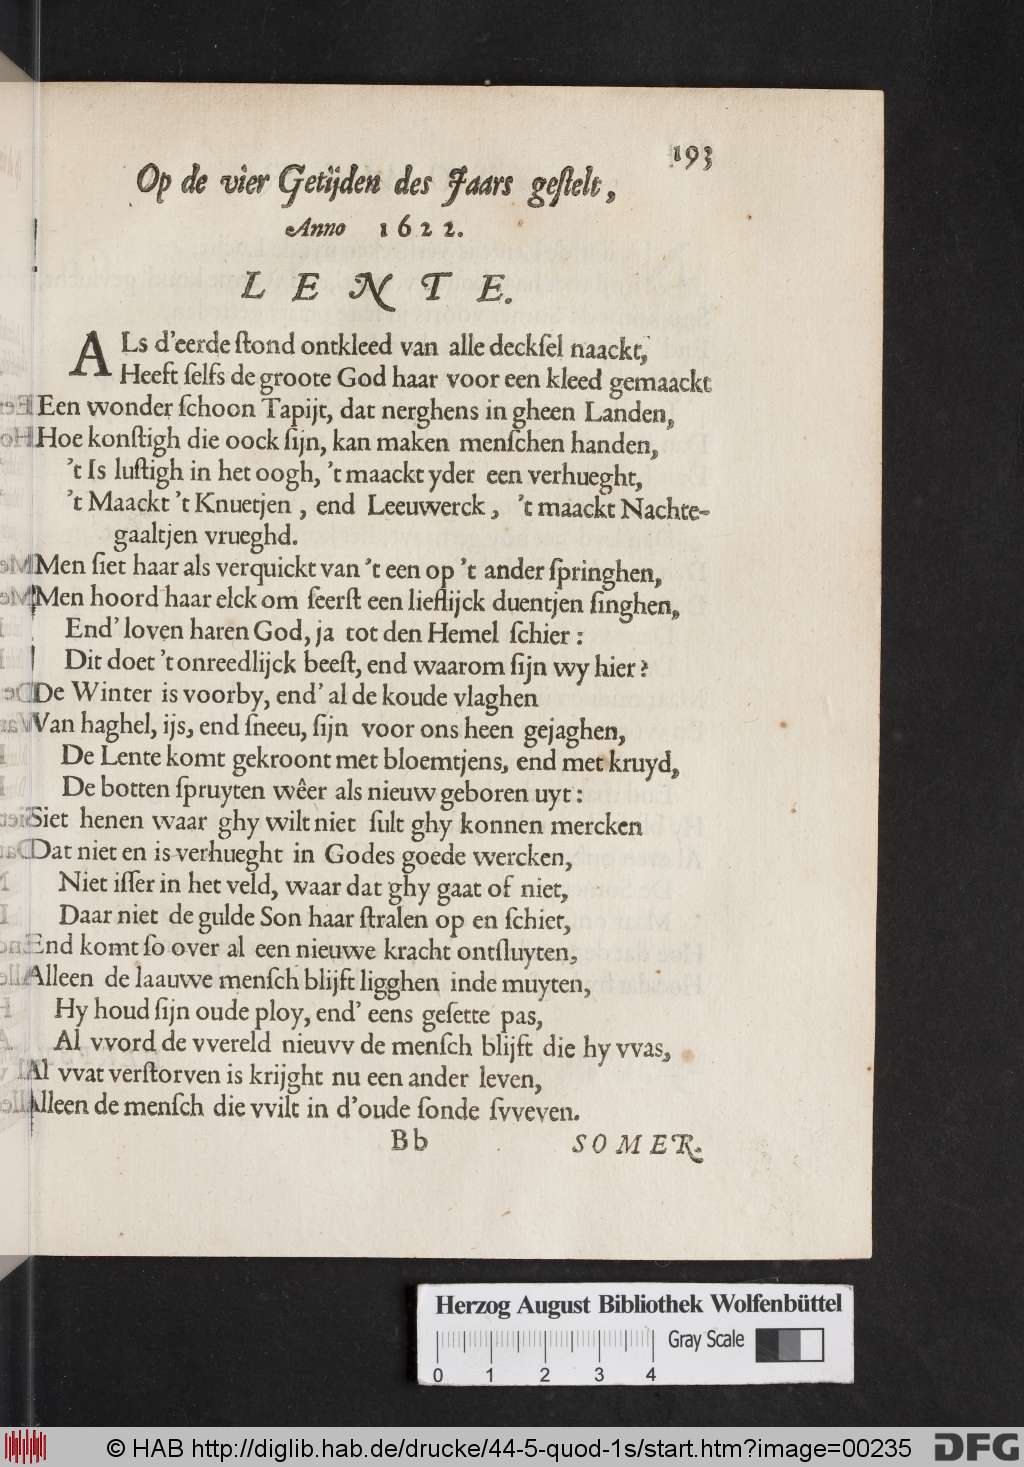 193
Op de vier Getijden des Jaars geſtelt,
Anno 1622.
LENTE.
ALs d'eerde ſtond ontkleed van alle deckſel naackt,
Heeft ſelfs de groote God haar voor een kleed gemaackt
Een wonder ſchoon Tapijt, dat nerghens in gheen Landen,
Hoe konſtigh die oock ſijn, kan maken menſchen handen,
't Is luſtigh in het oogh, 't maackt yder een verhueght,
't Maackt 't Knuetjen, end Leeuwerck, 't maackt Nachte-
gaaltjen vrueghd.
Men ſiet haar als verquickt van 't een op 't ander ſpringhen,
Men hoord haar elck om ſeerſt een lieflijck duentjen ſinghen,
End' loven haren God, ja tot den Hemel ſchier:
Dit doet 't onreedlijck beeſt, end waarom ſijn wy hier?
De Winter is voorby, end' al de koude vlaghen
Van haghel, ijs, end ſneeu, ſijn voor ons heen gejaghen,
De Lente komt gekroont met bloemtjens, end met kruyd,
De botten ſpruyten wêer als nieuw geboren uyt:
Siet henen waar ghy wilt niet ſult ghy konnen mercken
Dat niet en is verhueght in Godes goede wercken,
Niet iſſer in het veld, waar dat ghy gaat of niet,
Daar niet de gulde Son haar ſtralen op en ſchiet,
End komt ſo over al een nieuwe kracht ontſluyten,
Alleen de laauwe menſch blijft ligghen inde muyten,
Hy houd ſijn oude ploy, end' eens geſette pas,
Al vvord de vvereld nieuvv de menſch blijft die hy vvas,
Al vvat verſtorven is krijght nu een ander leven,
Alleen de menſch die vvilt in d'oude ſonde ſvveven.
Bb SOMER.
Herzog August Bibliothek Wolfenbüttel
Gray Scale
0 1 2 3 4
© HAB http://diglib.hab.de/drucke/44-5-quod-1s/start.htm?image=00235
DFG